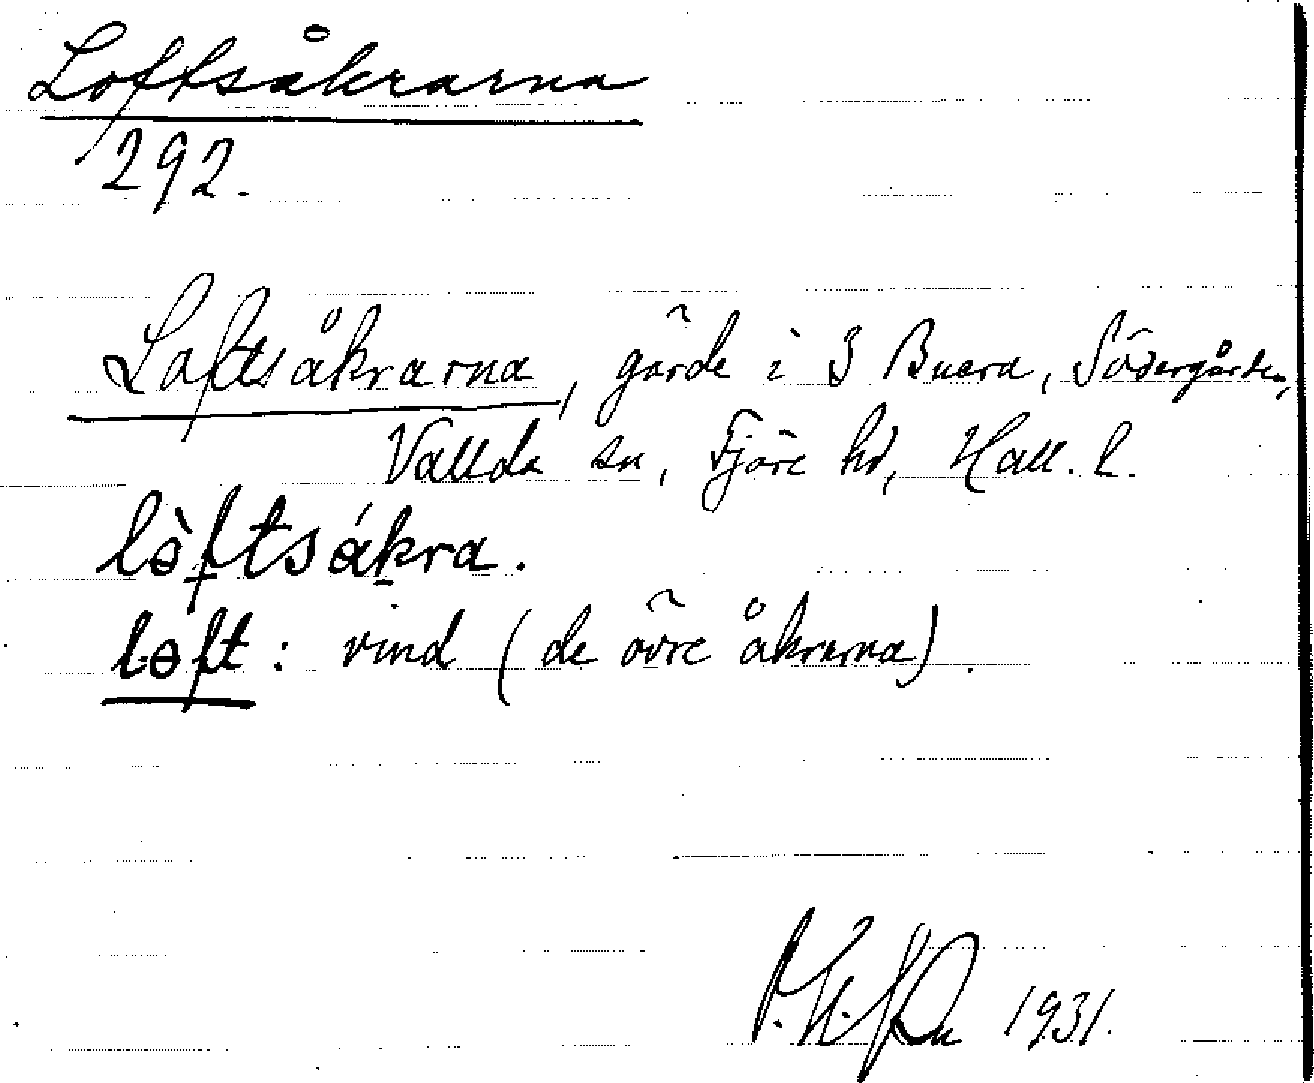 Loftsåkrarna
292.
Loftsåkrarna, gärde i 3 Buera, Södergården,
Vallda sn, Fjäre hd, Hall. l.
lò̖ftsákra.
loft: vind (de övre åkrarna).
1931.